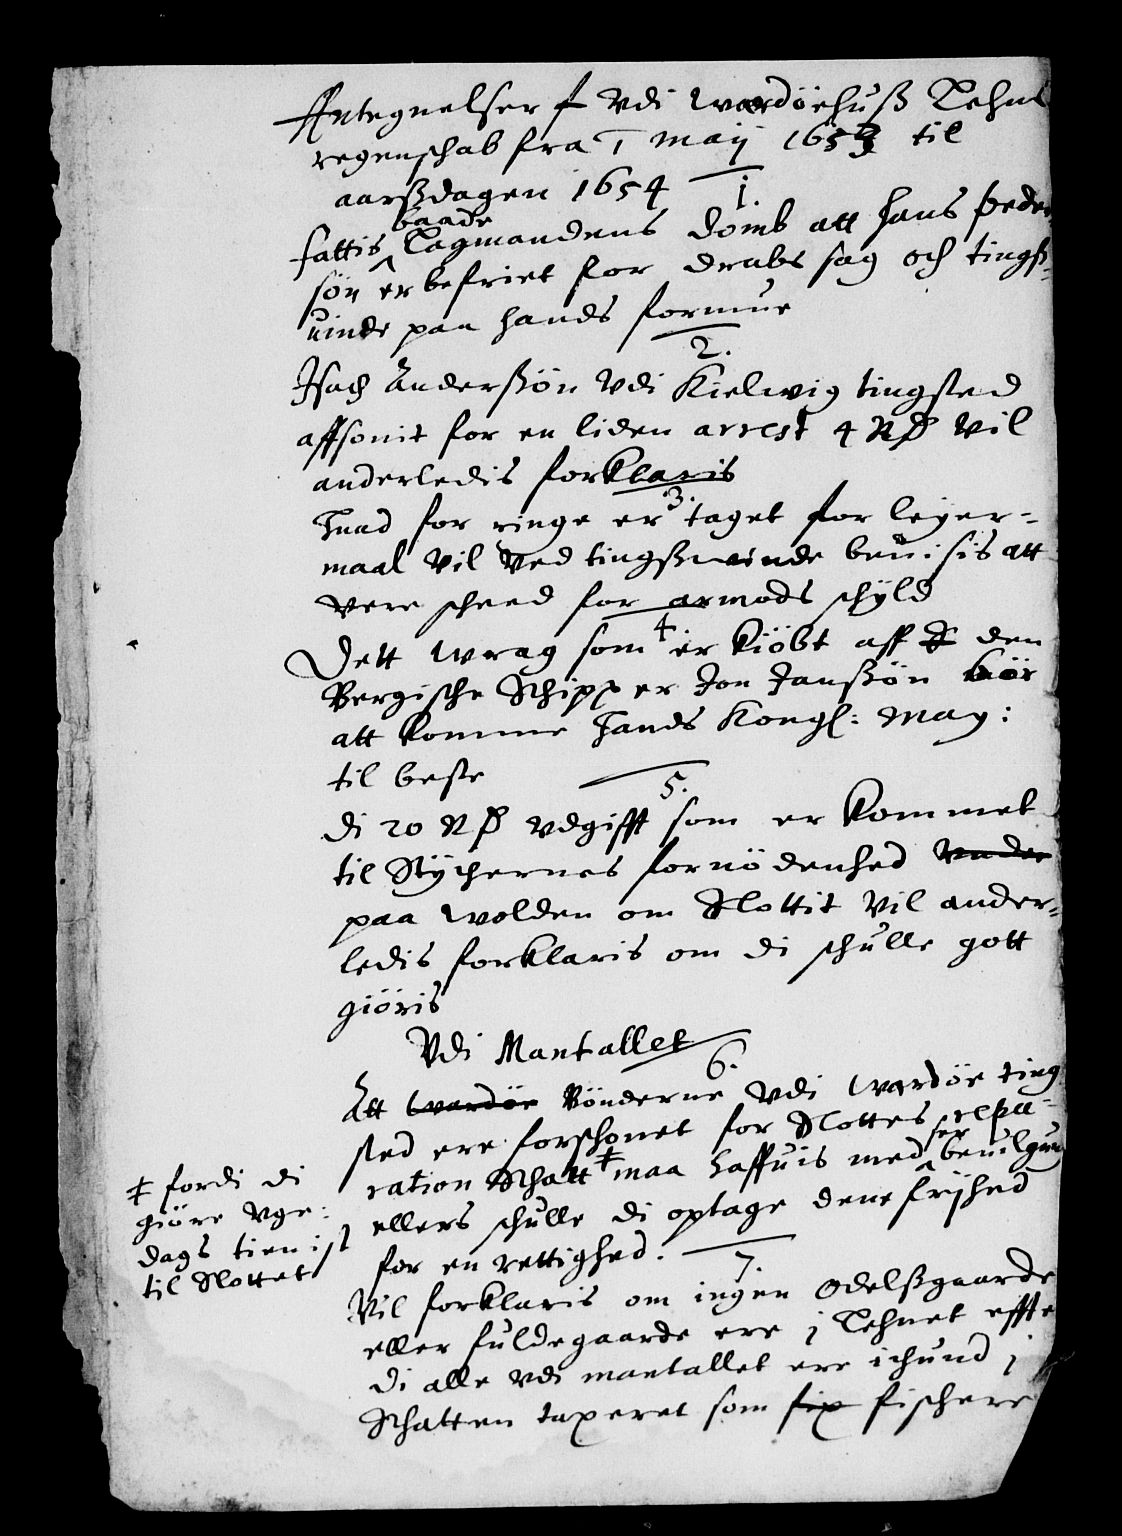 Antegnelser f Vdi Wardøehuß Lehns
regenschab fra 1 maij 1653 til
aarßdagen 1654
1.
fattis baade Lagmandens domb att Hans Peder
søn er befriet for drabs sag och tingß-
uinde paa hands formue
2.
Isach Anderßøn Vdi Kielwig tingsted
affsonit for en liden arrest 4 Rd Vil
anderledis forklaris
3.
Huad for ringe er taget for leyer-
maal Vil Ved tingßwinde beuisis att
Vere scheed for armods schyld
4
Dett Wrag som er kiøbt aff den
Bergische Schipper Jon Janßøn bør
att komme Hands Kongl: May:
til beste
5.
di 20 Rd Vdgifft som er kommet
til Stÿchernes fornødenhed Vnder
paa Wolden om Slottit Vil ander-
ledis forklaris om di schulle gott
giøris
Vdi Mantallet
6.
Att Wardøe Bønderne Vdi Wardøe ting
sted ere forschonet for Slottes repa-
ration Schatt ‡ maa Haffuis med ser beuilgning
ellers schulle di optage dene frijhed
for en rettighed.
‡ fordi di
giøre Vge-
dags tienist
til Slottet
7.
Vil forklaris om ingen Odelßgaarde
eller fuldegaarde ere j Lehnet effte
di alle Vdi mantallet ere ichund j
Schatten taxeret som fix fischere